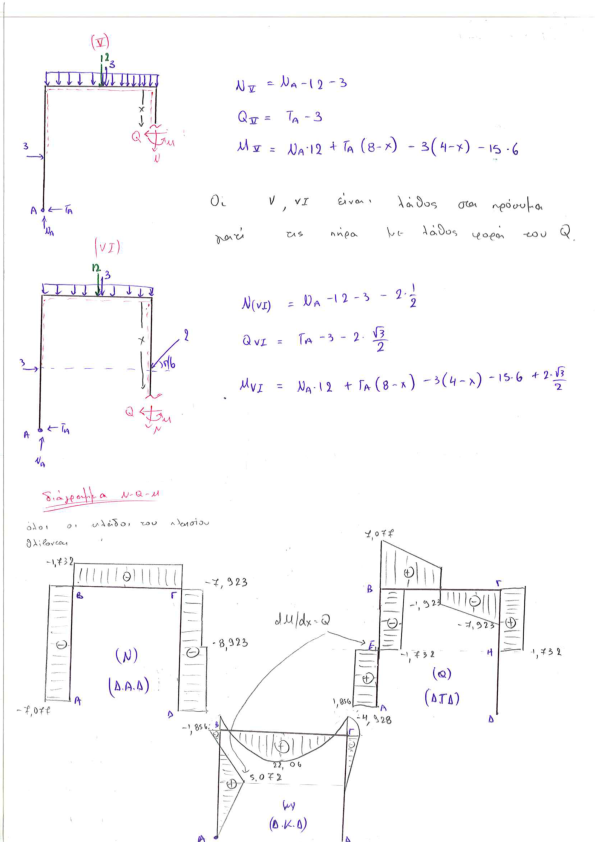 (V)
12
3
x
Q
M
N
3
A
TA
NA
N_V = N_A -12 -3
Q_V = T_A - 3
M_V = N_A·12 + T_A (8-x) - 3(4-x) - 15·6
Οι V, VI είναι λάθος στα πρόσημα
γιατί τις πήρα με λάθος φορά του Q.
(VI)
12
3
x
2
π/6
3
Q
M
N
A
TA
NA
N(VI) = N_A -12 -3 - 2·1/2
Q_VI = T_A -3 -2·√3/2
M_VI = N_A·12 + T_A (8-x) -3(4-x) -15·6 + 2·√3/2
διάγραμμα N-Q-M
όλοι οι κλάδοι του πλαισίου
θλίβονται
-1,732
-7,923
B
Γ
-8,923
(N)
(Δ.Α.Δ)
-7,077
A
Δ
7,077
B
Γ
-1,923
-7,923
E
-1,732
H
1,732
(Q)
(ΔΤΔ)
1,856
A
Δ
dM/dx=Q
-1,856
B
-4,928
Γ
22,06
5,072
(Δ.Κ.Δ)
A
Δ